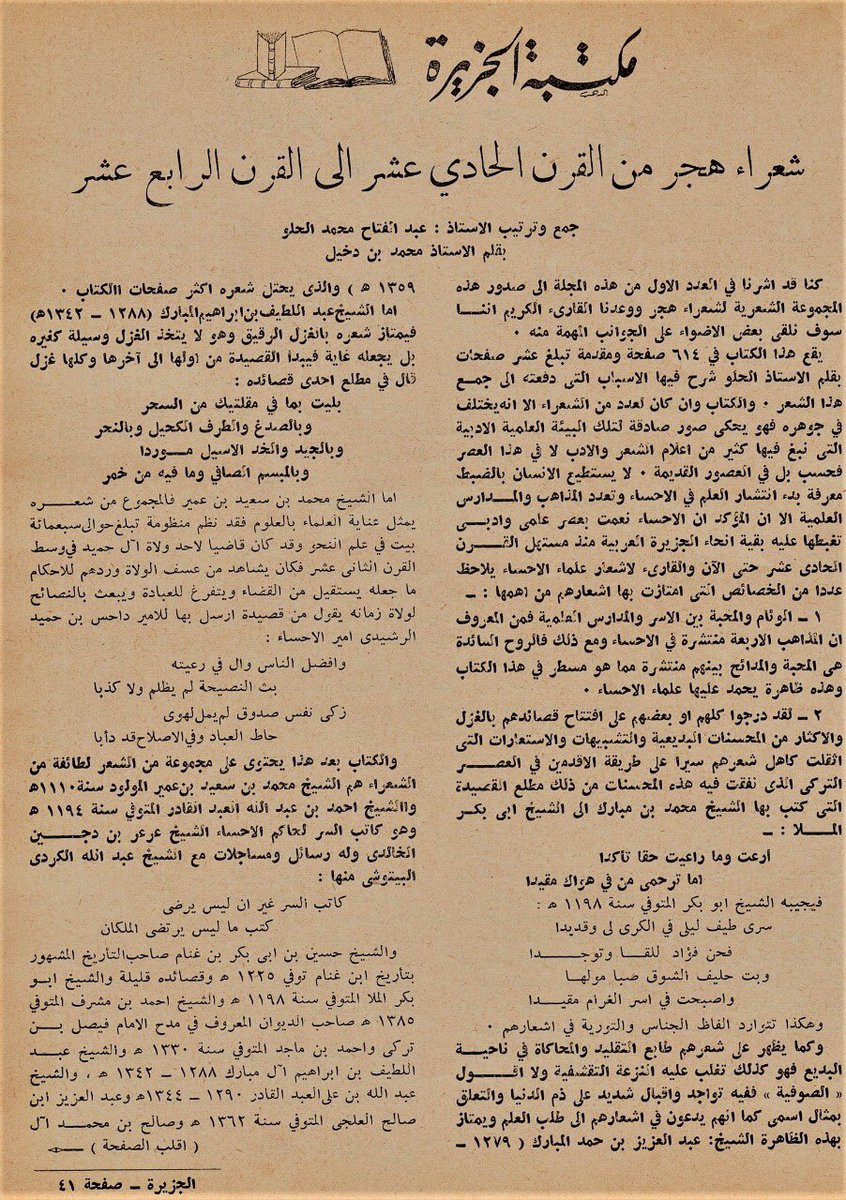 مكتبة الجزيرة
شعراء هجر من القرن الحادي عشر الى القرن الرابع عشر
جمع وترتيب الاستاذ : عبد الفتاح محمد الحلو
بقلم الاستاذ محمد بن دخيل
كنا قد اشرنا في العدد الاول من هذه المجلة الى صدور هذه
المجموعة الشعرية لشعراء هجر ووعدنا القارىء الكريم اننا
سوف نلقى بعض الاضواء على الجوانب المهمة منه ٠
يقع هذا الكتاب في ٦١٤ صفحة ومقدمة تبلغ عشر صفحات
بقلم الاستاذ الحلو شرح فيها الاسباب التى دفعته الى جمع
هذا الشعر ٠ والكتاب وان كان لعدد من الشعراء الا انه يختلف
في جوهره فهو يحكى صور صادقة لتلك البيئة العلمية الادبية
التى نبغ فيها كثير من اعلام الشعر والادب لا في هذا العصر
فحسب بل في العصور القديمة ٠ لا يستطيع الانسان بالضبط
معرفة بدء انتشار العلم في الاحساء وتعدد المذاهب والمدارس
العلمية الا ان المؤكد ان الاحساء نعمت بعصر علمى وادبى
تغبطها عليه بقية انحاء الجزيرة العربية منذ مستهل القرن
الحادى عشر حتى الآن والقارىء لاشعار علماء الاحساء يلاحظ
عددا من الخصائص التى امتازت بها اشعارهم من اهمها : ـ
١ ـ الوئام والمحبة بين الاسر والمدارس العلمية فمن المعروف
ان المذاهب الاربعة منتشرة في الاحساء ومع ذلك فالروح السائدة
هى المحبة والمدائح بينهم منتشرة مما هو مسطر في هذا الكتاب
وهذه ظاهرة يحمد عليها علماء الاحساء ٠
٢ ـ لقد درجوا كلهم او بعضهم على افتتاح قصائدهم بالغزل
والاكثار من المحسنات البديعية والتشبيهات والاستعارات التى
اثقلت كاهل شعرهم سيرا على طريقة الاقدمين في العصر
التركى الذى نفقت فيه هذه المحسنات من ذلك مطلع القصيدة
التى كتب بها الشيخ محمد بن مبارك الى الشيخ ابى بكر
الملا : ـ
أرعت وما راعيت حقا تأكدا
اما ترحمى من في هواك مقيدا
فيجيبه الشيخ ابو بكر المتوفي سنة ١١٩٨ ه :
سرى طيف ليلى في الكرى لى وقديدا
فحن فؤاد للقا وتوجدا
وبت حليف الشوق صبا مولها
واصبحت في اسر الغرام مقيدا
وهكذا تتوارد الفاظ الجناس والتورية في اشعارهم ٠
وكما يظهر على شعرهم طابع التقليد والمحاكاة في ناحية
البديع فهو كذلك تغلب عليه النزعة التقشفية ولا اقول
« الصوفية » ففيه تواجد واقبال شديد على ذم الدنيا والتعلق
بمثال اسمى كما انهم يدعون في اشعارهم الى طلب العلم ويمتاز
بهذه الظاهرة الشيخ: عبد العزيز بن حمد المبارك ( ١٢٧٩ ـ
١٣٥٩ ه ) والذى يحتل شعره اكثر صفحات االكتاب ٠
اما الشيخ عبد اللطيف بن ابراهيم المبارك (١٢٨٨ ـ ١٣٤٢ه)
فيمتاز شعره بالغزل الرقيق وهو لا يتخذ الغزل وسيلة كغيره
بل يجعله غاية فيبدأ القصيدة من اولها الى آخرها وكلها غزل
قال في مطلع احدى قصائده :
بليت بما في مقلتيك من السحر
وبالصدغ والطرف الكحيل وبالنحر
وبالجيد والخد الاسيل موردا
وبالمبسم الصافي وما فيه من خمر
اما الشيخ محمد بن سعيد بن عمير فالمجموع من شعره
يمثل عناية العلماء بالعلوم فقد نظم منظومة تبلغ حوالى سبعمائة
بيت في علم النحو وقد كان قاضيا لاحد ولاة آل حميد في وسط
القرن الثانى عشر فكان يشاهد من عسف الولاة وردهم للاحكام
ما جعله يستقيل من القضاء ويتفرغ للعبادة ويبعث بالنصائح
لولاة زمانه يقول من قصيدة ارسل بها للامير داحس بن حميد
الرشيدى امير الاحساء :
وافضل الناس وال في رعيته
بث النصيحة لم يظلم ولا كذبا
زكى نفس صدوق لم يمل لهوى
حاط العباد وفي الاصلاح قد دأبا
والكتاب بعد هذا يحتوى على مجموعة من الشعر لطائفة من
الشعراء هم الشيخ محمد بن سعيد بن عمير المولود سنة ١١١٠ه
واالشيخ احمد بن عبد الله العبد القادر المتوفي سنة ١١٩٤ ه
وهو كاتب السر لحاكم الاحساء الشيخ عرعر بن دجين
الخالدى وله رسائل ومساجلات مع الشيخ عبد الله الكردى
البيتوشى منها :
كاتب السر غير ان ليس يرضى
كتب ما ليس يرتضى الملكان
والشيخ حسين بن ابى بكر بن غنام صاحب التأريخ المشهور
بتأريخ ابن غنام توفي ١٢٢٥ ه وقصائده قليلة والشيخ ابو
بكر الملا المتوفي سنة ١١٩٨ ه والشيخ احمد بن مشرف المتوفي
١٣٨٥ ه صاحب الديوان المعروف في مدح الامام فيصل بن
تركى واحمد بن ماجد المتوفي سنة ١٣٣٠ ه والشيخ عبد
اللطيف بن ابراهيم آل مبارك ١٢٨٨ ـ ١٣٤٢ ه ، والشيخ
عبد الله بن على العبد القادر ١٢٩٠ ـ ١٣٤٤ه وعبد العزيز ابن
صالح العلجى المتوفي سنة ١٣٦٢ ه وصالح بن محمد آل
( اقلب الصفحة )
الجزيرة ـ صفحة ٤١